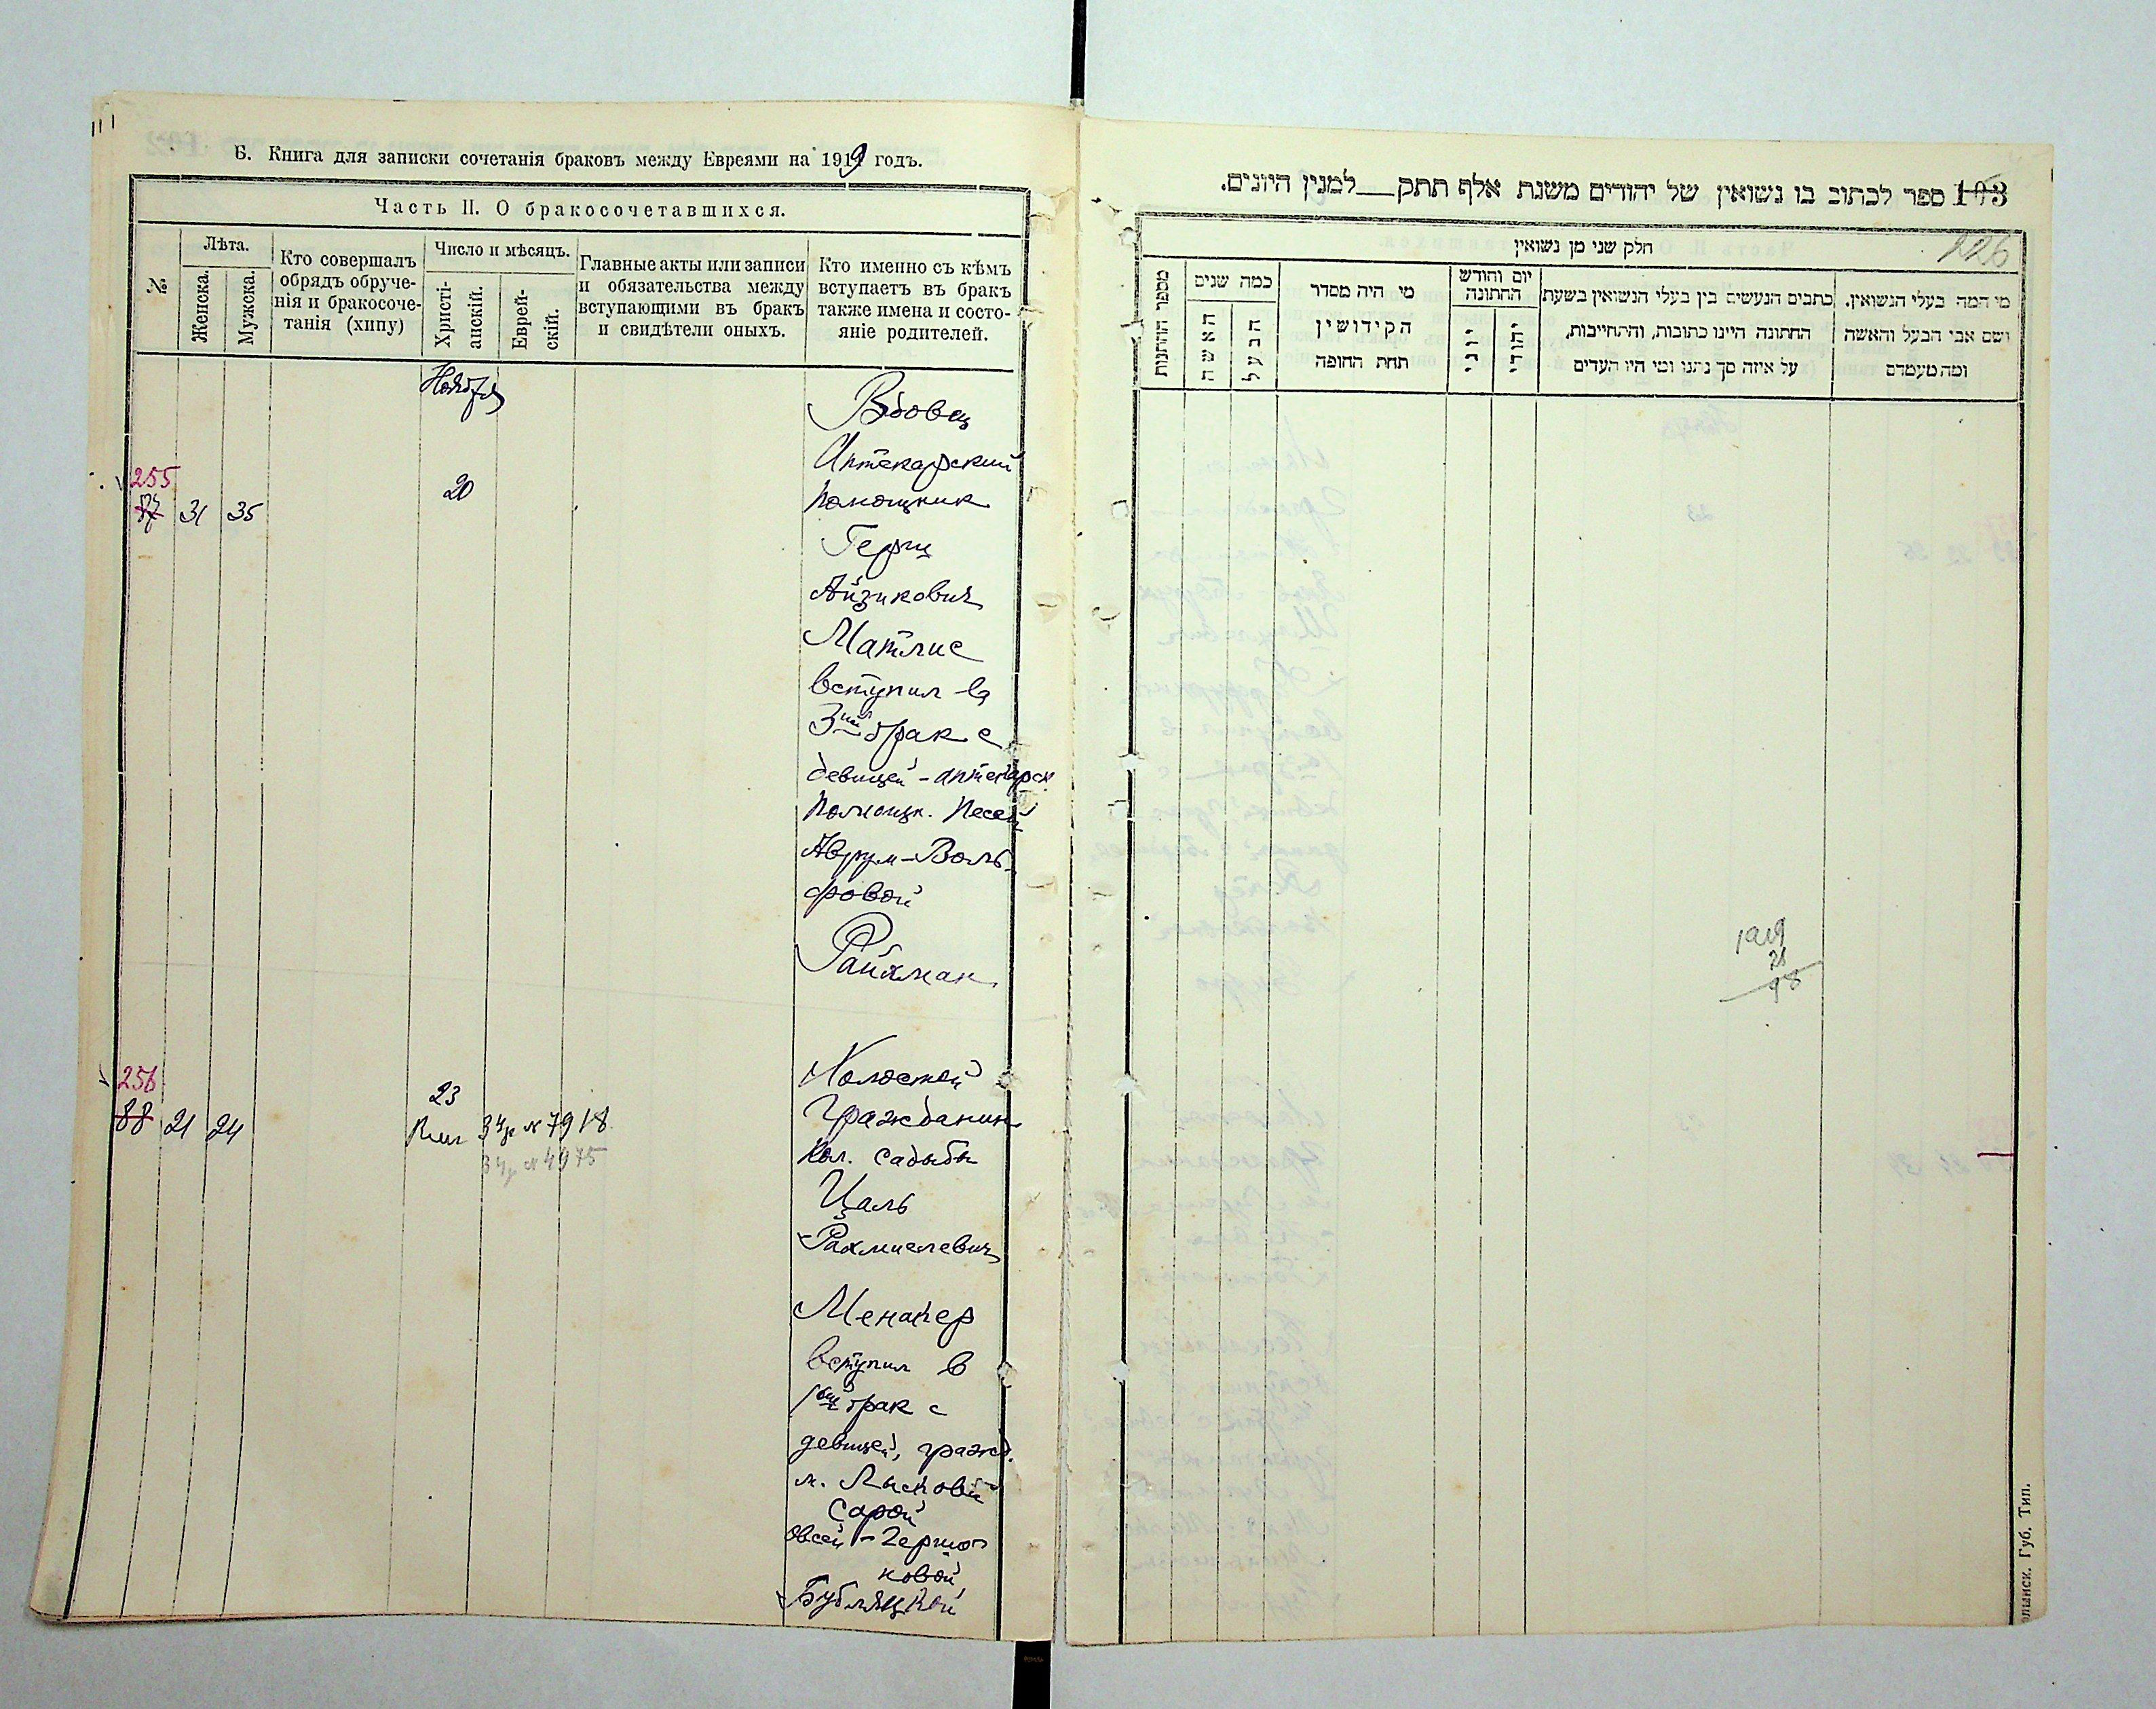 Б. Книга для записки сочетанія браковъ между Евреями на 1919 годъ.
Часть II. О бракосочетавшихся.
№
Лѣта.
Женска.
Мужска.
Кто совершалъ
обрядъ обруче-
нія и бракосоче-
танія (хипу)
Число и мѣсяцъ.
Христі-
анскій.
Еврей-
скій.
Главные акты или записи
и обязательства между
вступающими въ бракъ
и свидѣтели оныхъ.
Кто именно съ кѣмъ
вступаетъ въ бракъ
также имена и состо-
яніе родителей.
Ноября
255
87 31 35
20
Вдовец
Аптекарский
помощник
Герш
Айзикович
Матлис
вступил в
3ий брак с
девицей - аптекарск
помощн. Песей
Аврум-Воль-
фовой
Райхман
256
88 21 24
23
№ 7918
№ 4975
Холостой
Гражданин
Кол. Садыбы
Цаль
Рахмиелевич
Менакер
вступил в
1ый брак с
девицей, гражд.
м. Лысковой
Сарой
Овсей-Герш
ковой
Бубляцкой
103 ספר לכתוב בו נשואין של יהודים משנת אלף תתק__למנין היונים.
126
חלק שני מן נשואין
מספר החתנות
כמה שנים
האשה
הבעל
מי היה מסדר
הקידושין
תחת החופה
יום וחודש
החתונה
יוני
יהודי
כתבים הנעשים בין בעלי הנשואין בשעת
החתונה היינו כתובות, והתחייבות,
על איזה סך נתנו ומי היו העדים
מי המה בעלי הנשואין.
ושם אבי הבעל והאשה
ומה מעמדם
1919
21
98
олынск. Губ. Тип.